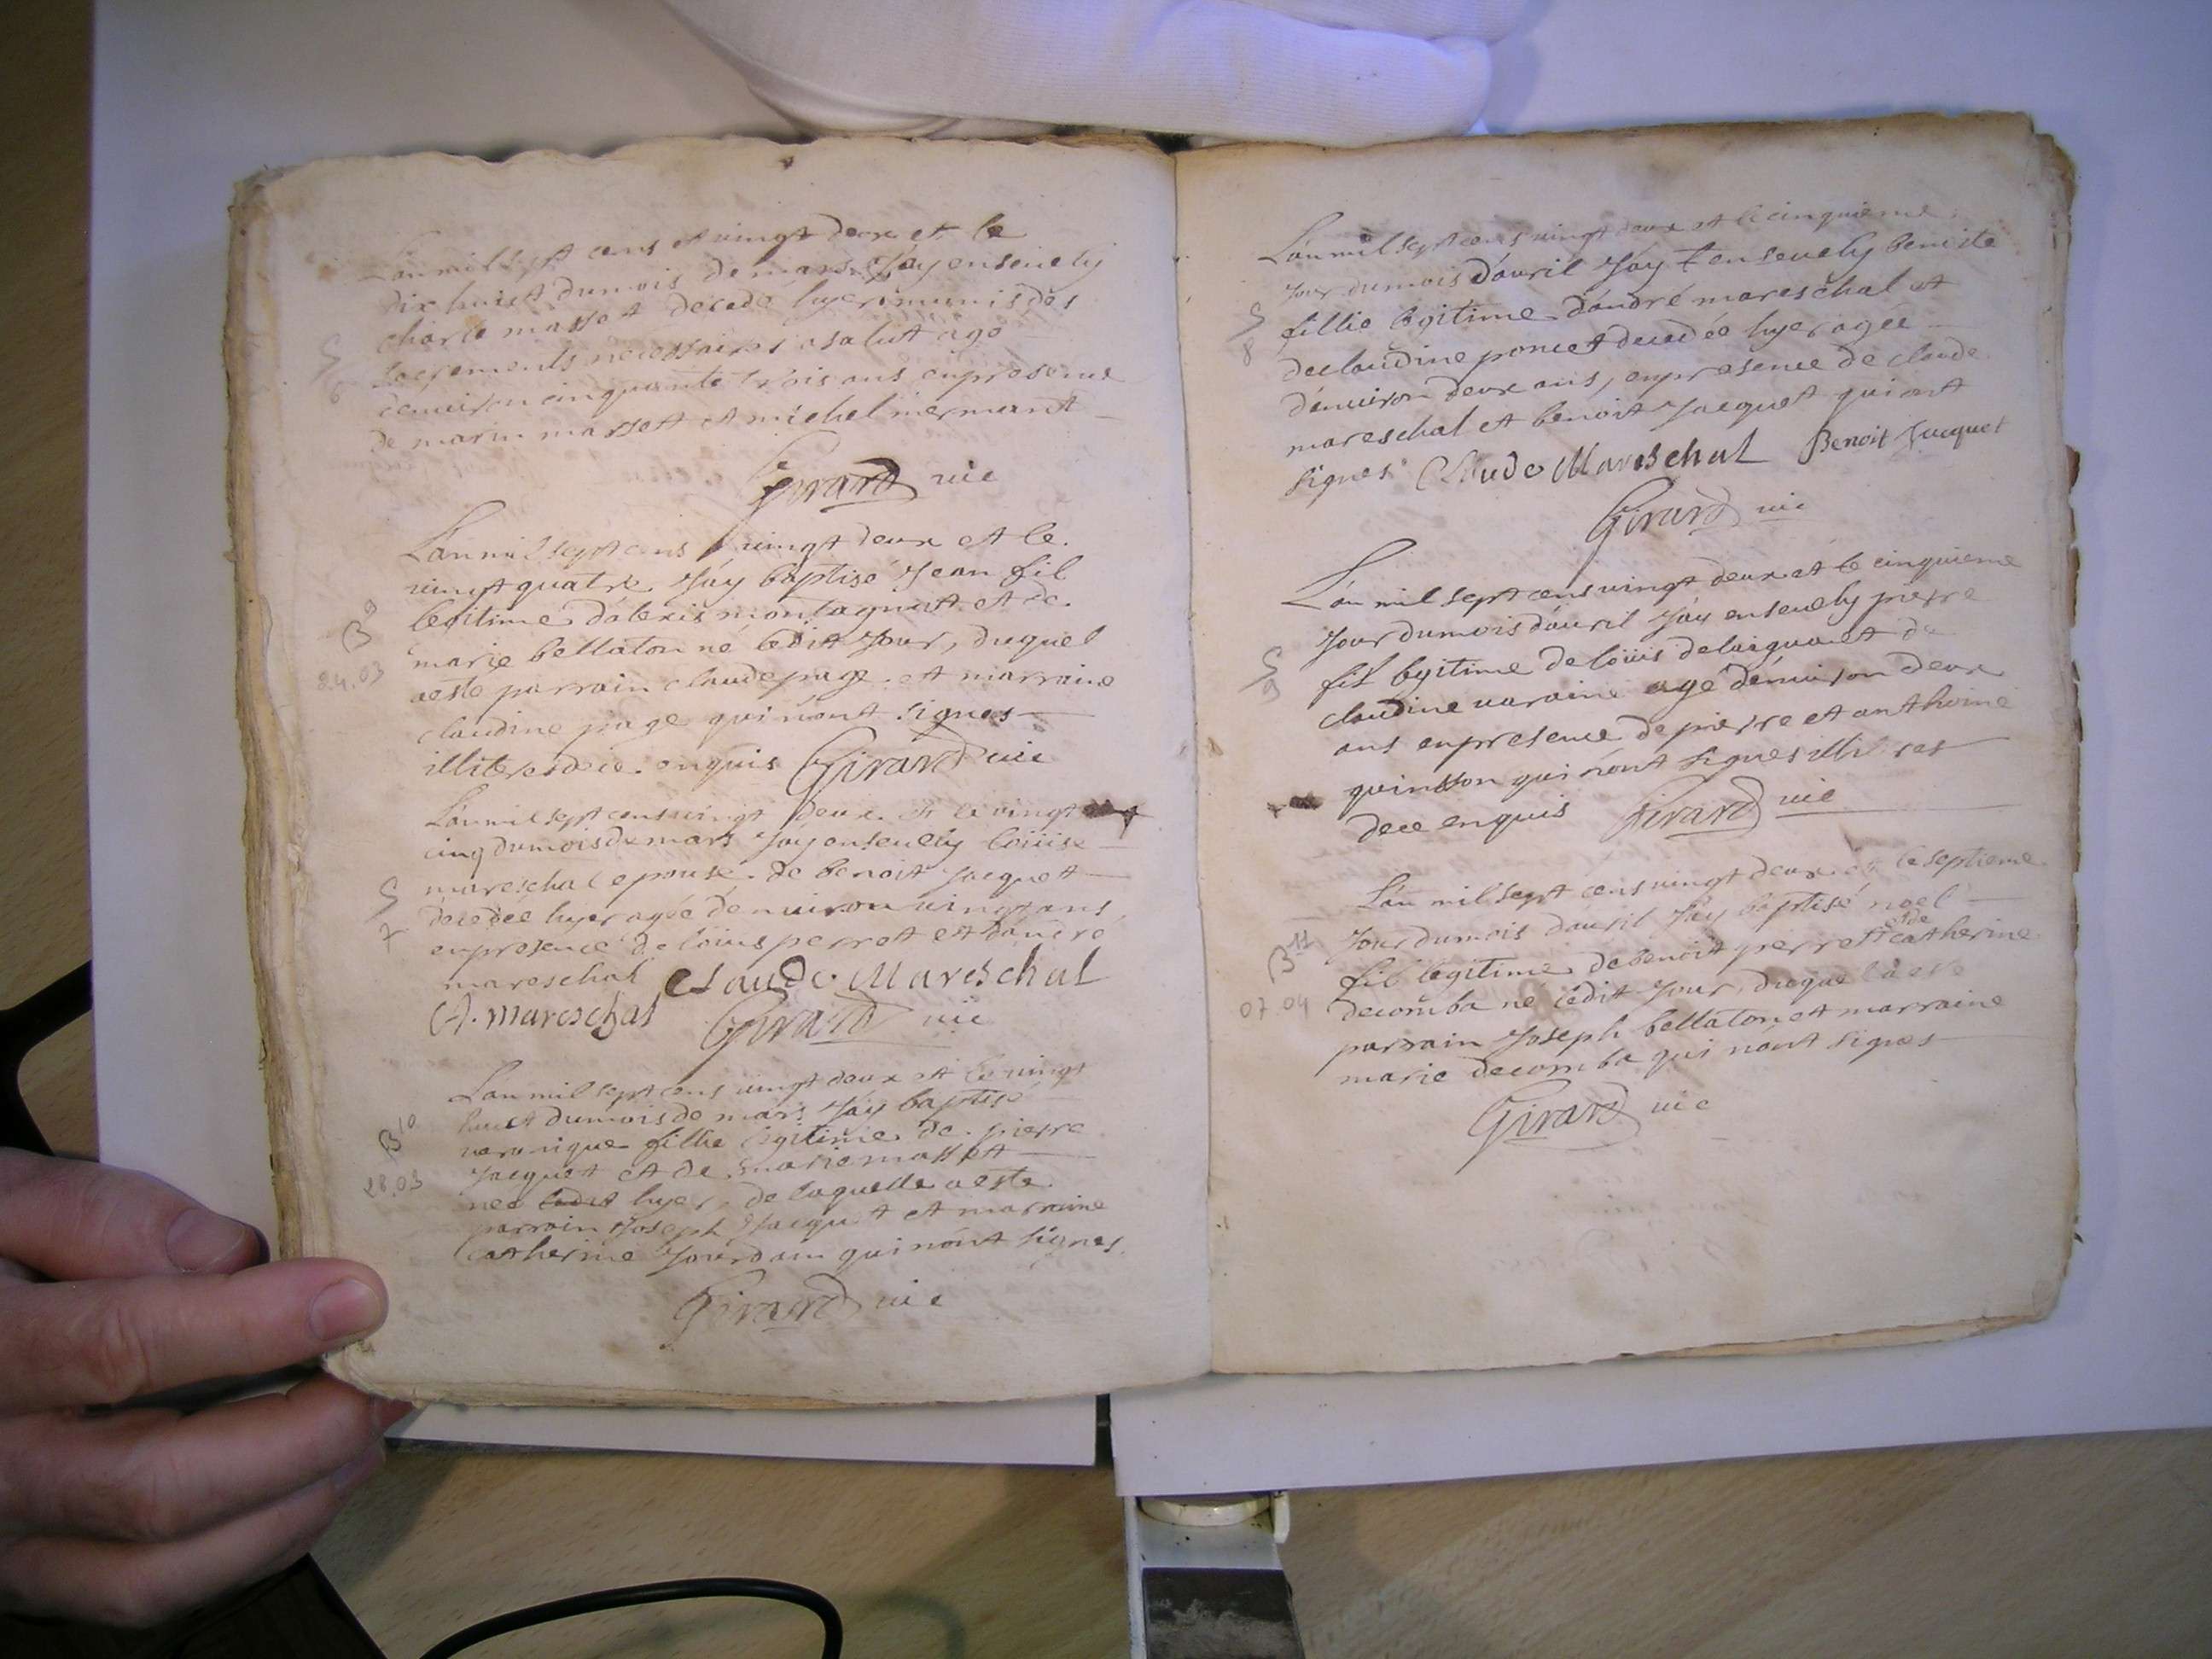 L'an mil sept cens et vingt deux et le
dix huict du mois de mars J'ay ensevely
charle masset decedé hyer munis des
sacrements necessaires a salut agé
d'environ cinquante trois ans en presence
de marin masset et michel mermant
S
6
Girard vic
L'an mil sept cens vingt deux et le
vingt quatre J'ay baptisé Jean fil
legitime d'alexis montagnat et de
marie bellaton né ledit Jour, duquel
a esté parrain claude page et marraine
claudine page qui n'ont signes
illiteres de ce enquis Girard vic
B 9
24.03
L'an mil sept cens vingt deux et le vingt
cinq du mois de mars J'ay ensevely loüise
mareschal epouse de benoit Jacquet
decedée hyer agée d'environ vingt ans
en presence de loüis perret et d'andré
mareschal Claude Mareschal
A. mareschal Girard vic
S
7
L'an mil sept cens vingt deux et le vingt
huict du mois de mars J'ay baptisé
veronique fillie legitime de pierre
Jacquet et de marie masset
née hyer, de laquelle a esté
parrain Joseph Jacquet et marraine
catherine Jourdain qui n'ont signes
B 10
28.03
Girard vic
L'an mil sept cens vingt deux et le cinquieme
Jour du mois d'avril J'ay ensevely benoite
fillie legitime d'andré mareschal et
de claudine poncet decedée hyer agée
d'environ deux ans, en presence de claude
mareschal et benoit Jacquet qui ont
signes Claude Mareschal Benoit Jacquet
S
8
Girard vic
L'an mil sept cens vingt deux et le cinquieme
Jour du mois d'avril J'ay ensevely pierre
fil legitime de loüis et de
claudine varaine agé d'environ deux
ans en presence de pierre et anthoine
quinson qui n'ont signes
de ce enquis Girard vic
S
9
L'an mil sept cens vingt deux et le septieme
Jour du mois d'avril J'ay baptisé noel
fil legitime de benoit perret et de catherine
decomba né ledit Jour, duquel a esté
parrain Joseph bellaton et marraine
marie decomba qui n'ont signes
B 11
07.04
Girard vic